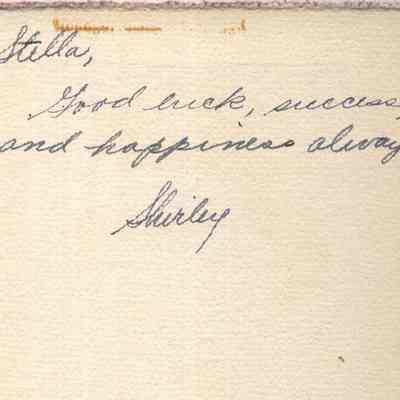 Stella,
Good luck, success,
and happiness alway
Shirley